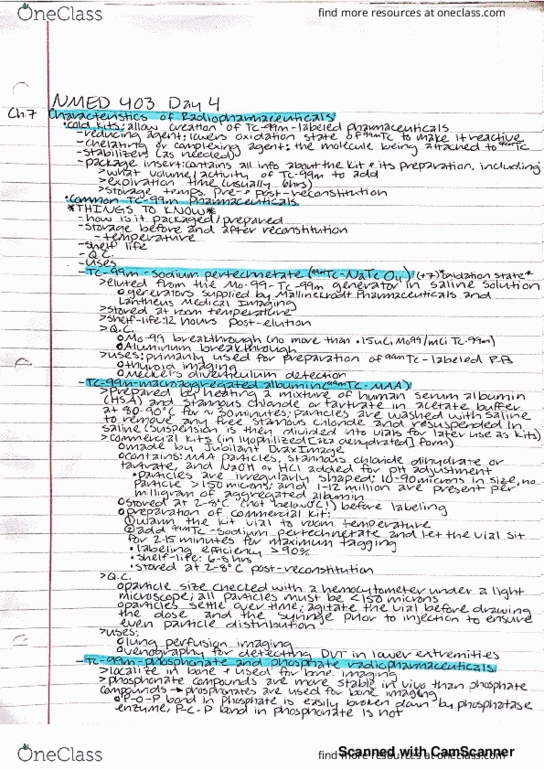 OneClass
find more resources at oneclass.com
NMED 403 Day 4
Ch.7 Characteristics of Radiopharmaceuticals
•cold kits: allow creation of Tc-99m-labeled pharmaceuticals
-reducing agent: lowers oxidation state of 99mTc to make it reactive
-chelating or complexing agent: the molecule being attached to 99mTc
-stabilizers (as needed)
-package insert: contains all info about the kit & its preparation, including:
>what volume/activity of Tc-99m to add
>expiration time (usually 6hrs)
>storage temps, pre- & post-reconstitution
•Common Tc-99m Pharmaceuticals
*THINGS TO KNOW*
-how is it packaged/prepared
-storage before and after reconstitution
-temperature
-shelf life
-Q.C.
-uses
-Tc-99m-Sodium pertechnetate (99mTc-NaTcO4) (+7) oxidation state*
>eluted from the Mo-99-Tc-99m generator in saline solution
o generators supplied by Mallinckrodt Pharmaceuticals and
Lantheus Medical Imaging
>stored at room temperature
>shelf-life: 12 hours post-elution
>Q.C.
o Mo-99 breakthrough (no more than .15uCi Mo99/mCi Tc-99m)
o Aluminum breakthrough
>uses: primarily used for preparation of 99mTc-labeled R.P.
o thyroid imaging
o Meckel's diverticulum detection
-Tc-99m-macroaggregated albumin (99mTc-MAA)
>prepared by heating a mixture of human serum albumin
(HSA) and stannous chloride or tartrate in acetate buffer
at 80-90°C for ~30minutes; particles are washed with saline
to remove any free stannous chloride and resuspended in
saline (suspension is then divided into vials for later use as kits)
>commercial kits (in lyophilized [aka dehydrated] form)
o made by Jubilant DraxImage
o contains: MAA particles, stannous chloride dihydrate or
tartrate, and NaOH or HCl added for pH adjustment
•particles are irregularly shaped; 10-90microns in size, no
particle >150microns; and 1-12 million are present per
miligram of aggregated albumin
o stored at 2-8°C (not below 0°C!) before labeling
o preparation of commercial kit:
① warm the kit vial to room temperature
② add 99mTc-sodium pertechnetate and let the vial sit
for 2-15 minutes for maximum tagging
•labeling efficiency >90%
•shelf-life: 6-8hrs
•stored at 2-8°C post-reconstitution
>Q.C.
o particle size checked with a hemocytometer under a light
microscope; all particles must be <150microns
o particles settle over time; agitate the vial before drawing
the dose and the syringe prior to injection to ensure
even particle distribution
>uses:
o lung perfusion imaging
o venography for detecting DVT in lower extremities
-Tc-99m-phosphonate and phosphate radiopharmaceuticals
>localize in bone & used for bone imaging
>phosphonate compounds are more stable in vivo than phosphate
compounds → phosphonates are used for bone imaging
o P-O-P bond in phosphate is easily broken down by phosphatase
enzyme, P-C-P bond in phosphonate is not
OneClass
find more resources at oneclass.com
Scanned with CamScanner